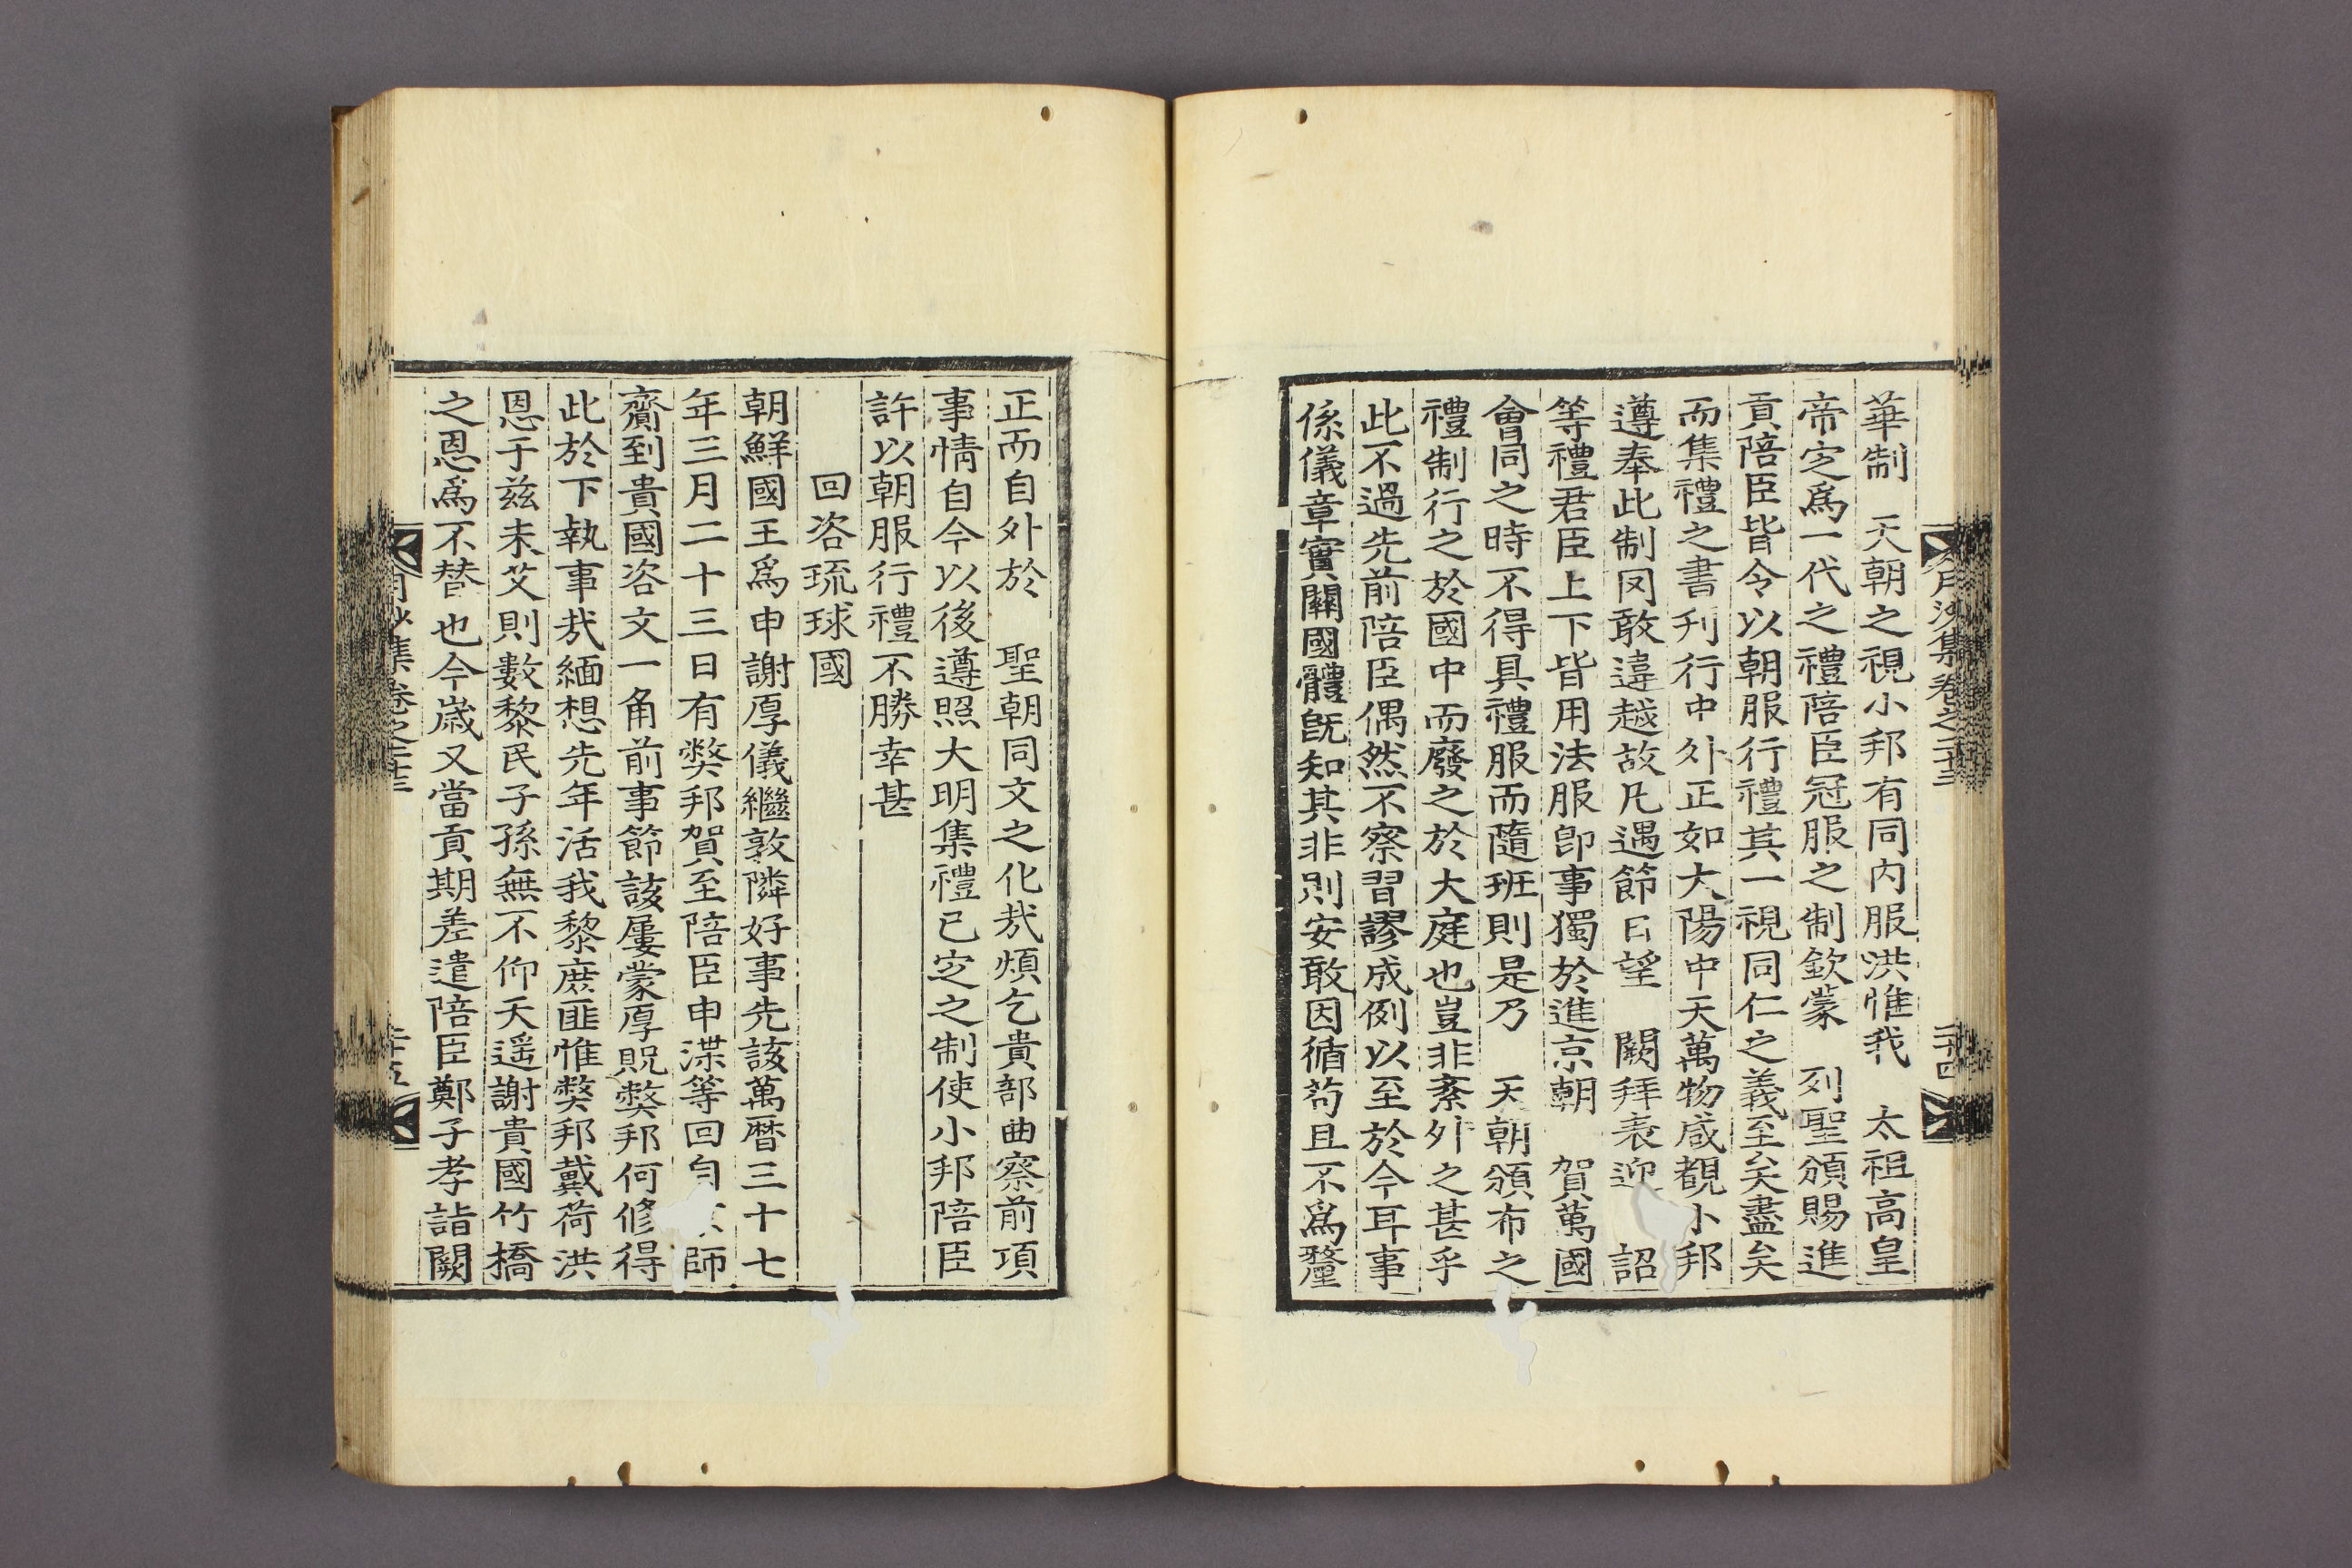 月沙集卷之二十三
二十四
華制　天朝之視小邦有同內服洪惟我　太祖高皇
帝定爲一代之禮陪臣冠服之制欽蒙　列聖頒賜進
貢陪臣皆令以朝服行禮其一視同仁之義至矣盡矣
而集禮之書刋行中外正如大陽中天萬物咸覩小邦
遵奉此制罔敢違越故凡遇節日望　闕拜表迎　詔
等禮君臣上下皆用法服卽事獨於進京朝　賀萬國
會同之時不得具禮服而隨班則是乃　天朝頒布之
禮制行之於國中而廢之於大庭也豈非紊外之甚乎
此不過先前陪臣偶然不察習謬成例以至於今耳事
係儀章實關國體旣知其非則安敢因循苟且不爲釐
正而自外於　聖朝同文之化㢤煩乞貴部曲察前項
事情自今以後遵照大明集禮已定之制使小邦陪臣
許以朝服行禮不勝幸甚
回咨琉球國
朝鮮國王爲申謝厚儀繼敦隣好事先該萬曆三十七
年三月二十三日有弊邦賀至陪臣申渫等回自 師
齎到貴國咨文一角前事節該屢蒙厚貺弊邦何修得
此於下執事㢤緬想先年活我黎庶匪惟弊邦戴荷洪
恩于玆未艾則數黎民子孫無不仰天遥謝貴國竹橋
之恩爲不替也今歲又當貢期差遣陪臣鄭子孝詣闕
月沙集卷之二十三
二十五